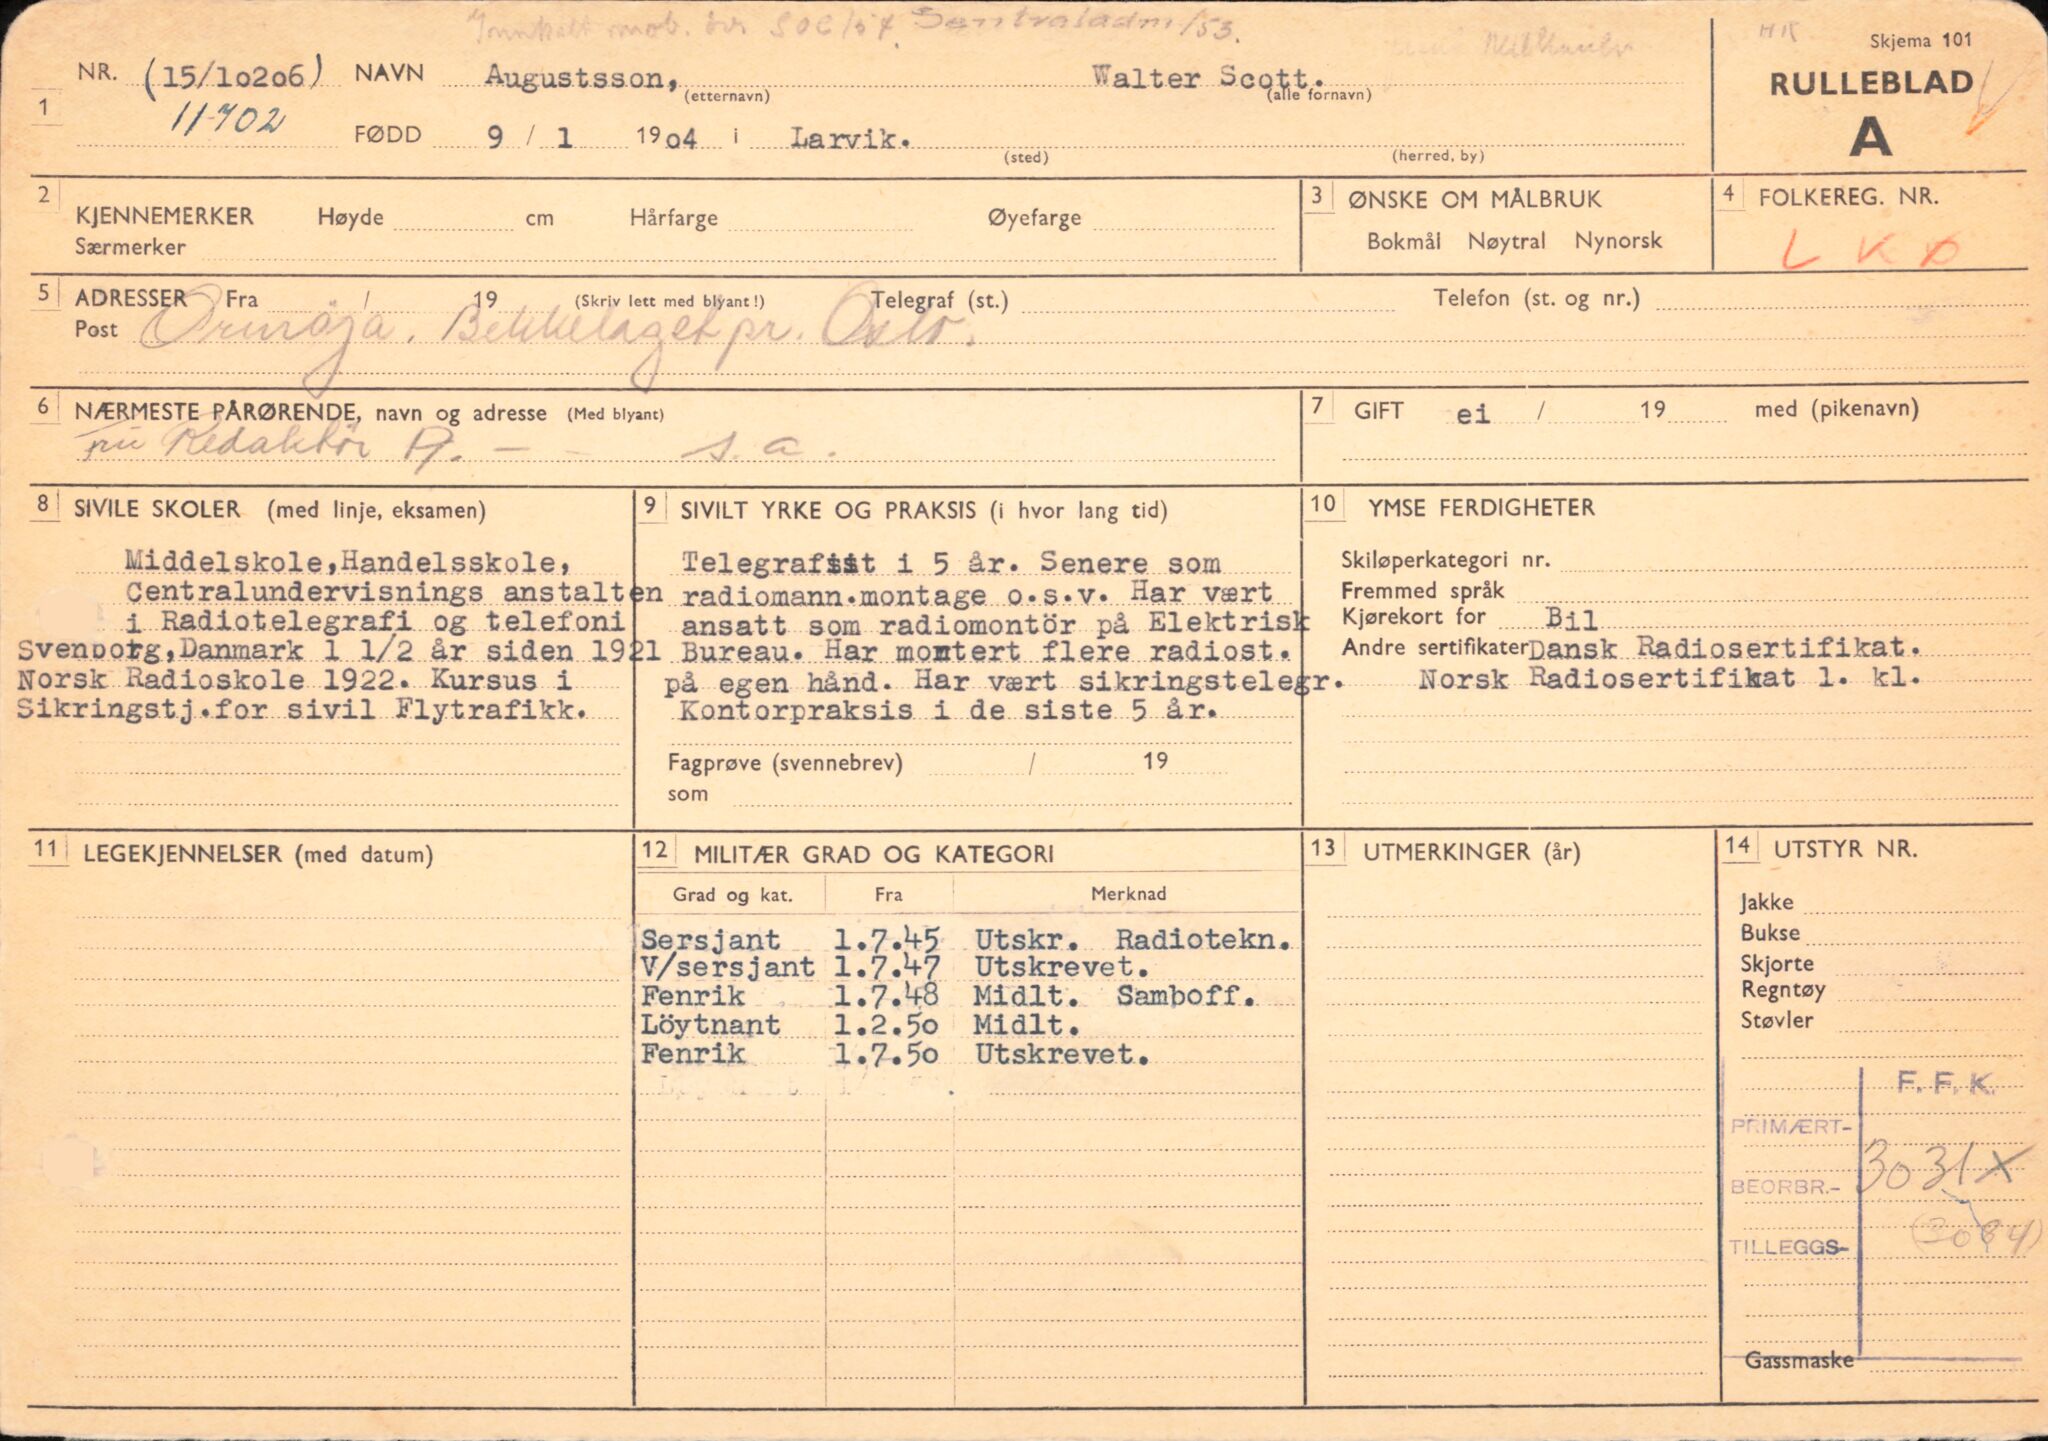 Innkalt mob. øv SOC/54. Sentraladm/53.
HK
Skjema 101
NR. (15/10206) NAVN Augustsson, (etternavn) Walter Scott. (alle fornavn)
RULLEBLAD
A
1
11702
FØDD 9 / 1 1904 i Larvik. (sted) (herred, by)
2 KJENNEMERKER Høyde cm Hårfarge Øyefarge
Særmerker
3 ØNSKE OM MÅLBRUK
Bokmål Nøytral Nynorsk
4 FOLKEREG. NR.
L K Ø
5 ADRESSER Fra / 19 (Skriv lett med blyant!) Telegraf (st.) Telefon (st. og nr.)
Post Ormøya. Bekkelaget pr. Oslo.
6 NÆRMESTE PÅRØRENDE, navn og adresse (Med blyant)
Redaktør A. - - s. a.
7 GIFT ei / 19 med (pikenavn)
8 SIVILE SKOLER (med linje, eksamen)
Middelskole, Handelsskole,
Centralundervisnings anstalten
i Radiotelegrafi og telefoni
Svenborg, Danmark 1 1/2 år siden 1921
Norsk Radioskole 1922. Kursus i
Sikringstj. for sivil Flytrafikk.
9 SIVILT YRKE OG PRAKSIS (i hvor lang tid)
Telegrafist i 5 år. Senere som
radiomann.montage o.s.v. Har vært
ansatt som radiomontör på Elektrisk
Bureau. Har montert flere radiost.
på egen hånd. Har vært sikringstelegr.
Kontorpraksis i de siste 5 år.
Fagprøve (svennebrev) / 19
som
10 YMSE FERDIGHETER
Skiløperkategori nr.
Fremmed språk
Kjørekort for Bil
Andre sertifikater Dansk Radiosertifikat.
Norsk Radiosertifikat 1. kl.
11 LEGEKJENNELSER (med datum)
12 MILITÆR GRAD OG KATEGORI
Grad og kat. Fra Merknad
Sersjant 1.7.45 Utskr. Radiotekn.
V/sersjant 1.7.47 Utskrevet.
Fenrik 1.7.48 Midlt. Samboff.
Löytnant 1.2.50 Midlt.
Fenrik 1.7.50 Utskrevet.
13 UTMERKINGER (år)
14 UTSTYR NR.
Jakke
Bukse
Skjorte
Regntøy
Støvler
F. F. K.
PRIMÆRT-
BEORBR.- 3031X
TILLEGGS- (3084)
Gassmaske